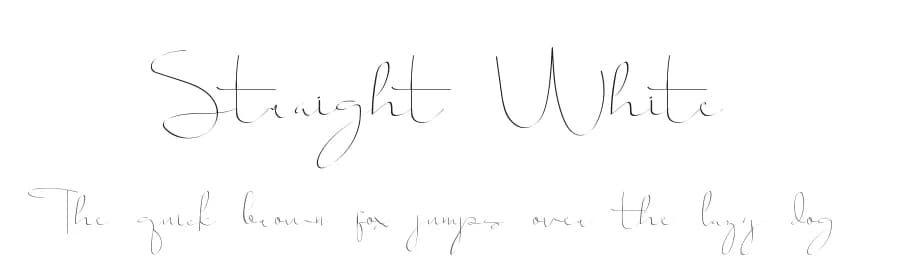 Straight White
The quick brown fox jumps over the lazy dog